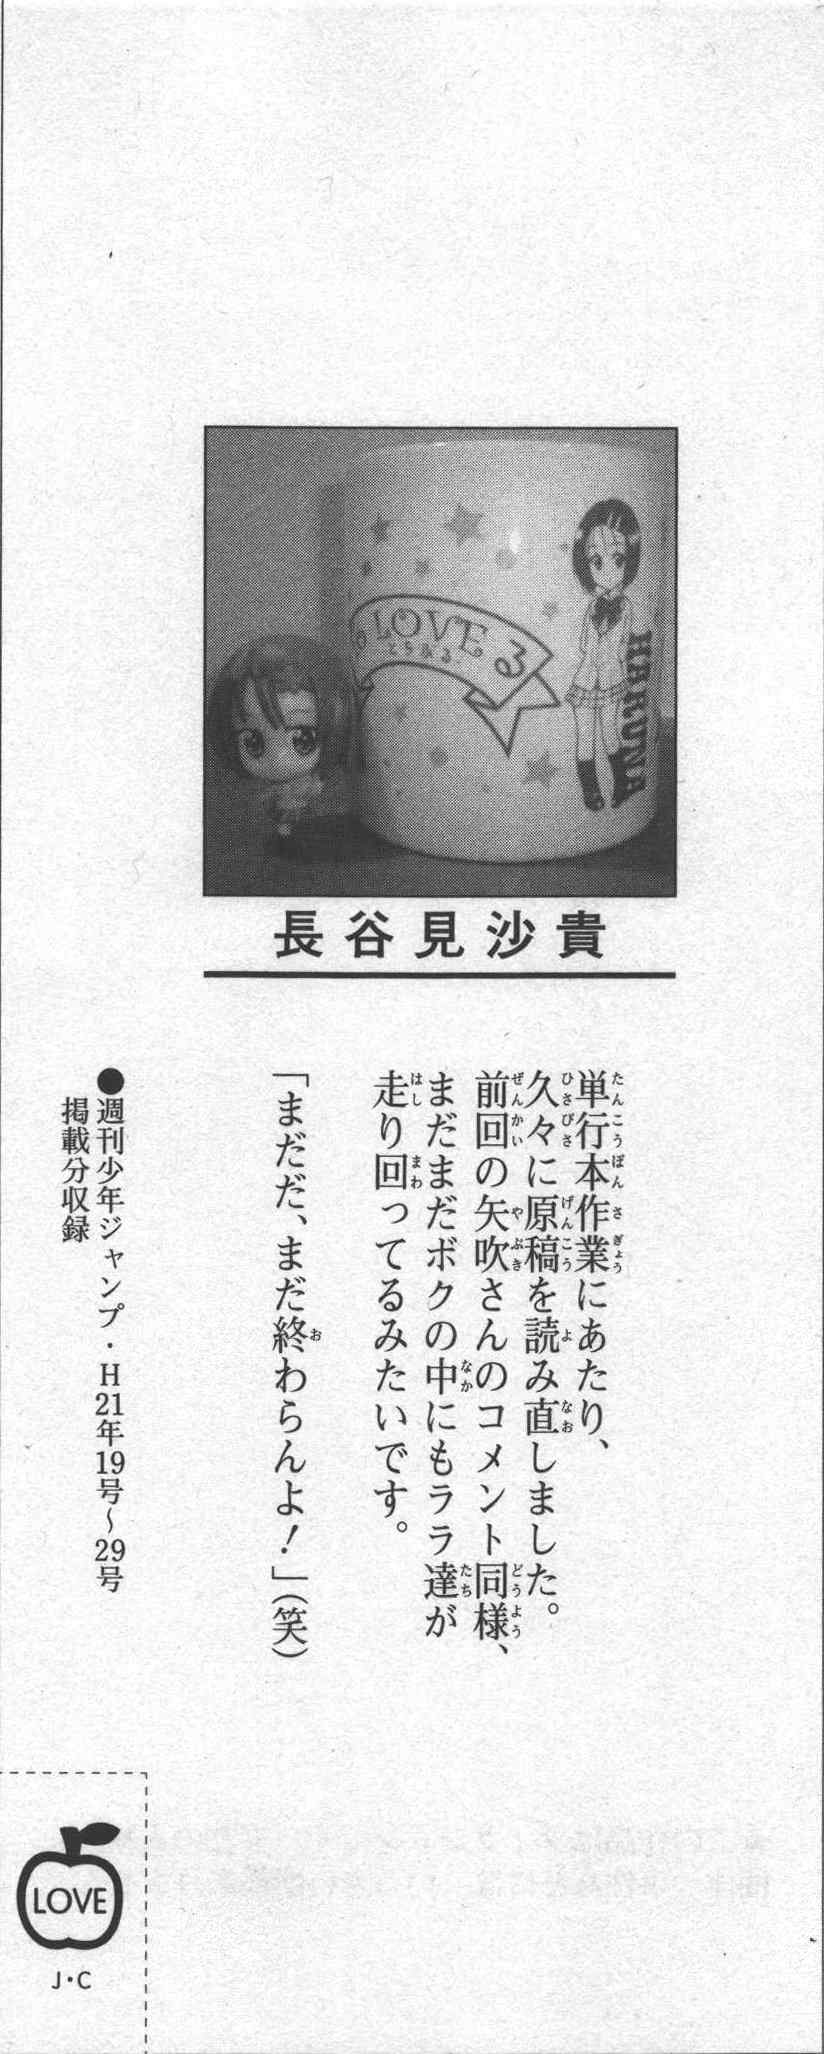 LOVEる
とらぶる
HARUNA
長谷見沙貴
単行本作業にあたり、
久々に原稿を読み直しました。
前回の矢吹さんのコメント同様、
まだまだボクの中にもララ達が
走り回ってるみたいです。
「まだだ、まだ終わらんよ!」(笑)
●週刊少年ジャンプ・H21年19号〜29号
掲載分収録
LOVE
J・C